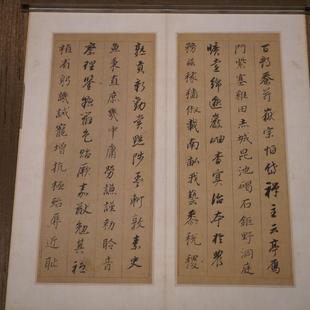 百郡秦并嶽宗恒岱禪主云亭雁
門紫塞雞田赤城昆池碣石鉅野洞庭
曠遠綿邈巖岫杳冥治本於農
務茲稼穡俶載南畝我藝黍稷
熟貢新勸賞黜陟孟軻敦素史
魚秉直庶幾中庸勞謙謹勅聆音
察理鑒貌辨色貽厥嘉猷勉其祗
植省躬譏誡寵增抗極殆辱近恥